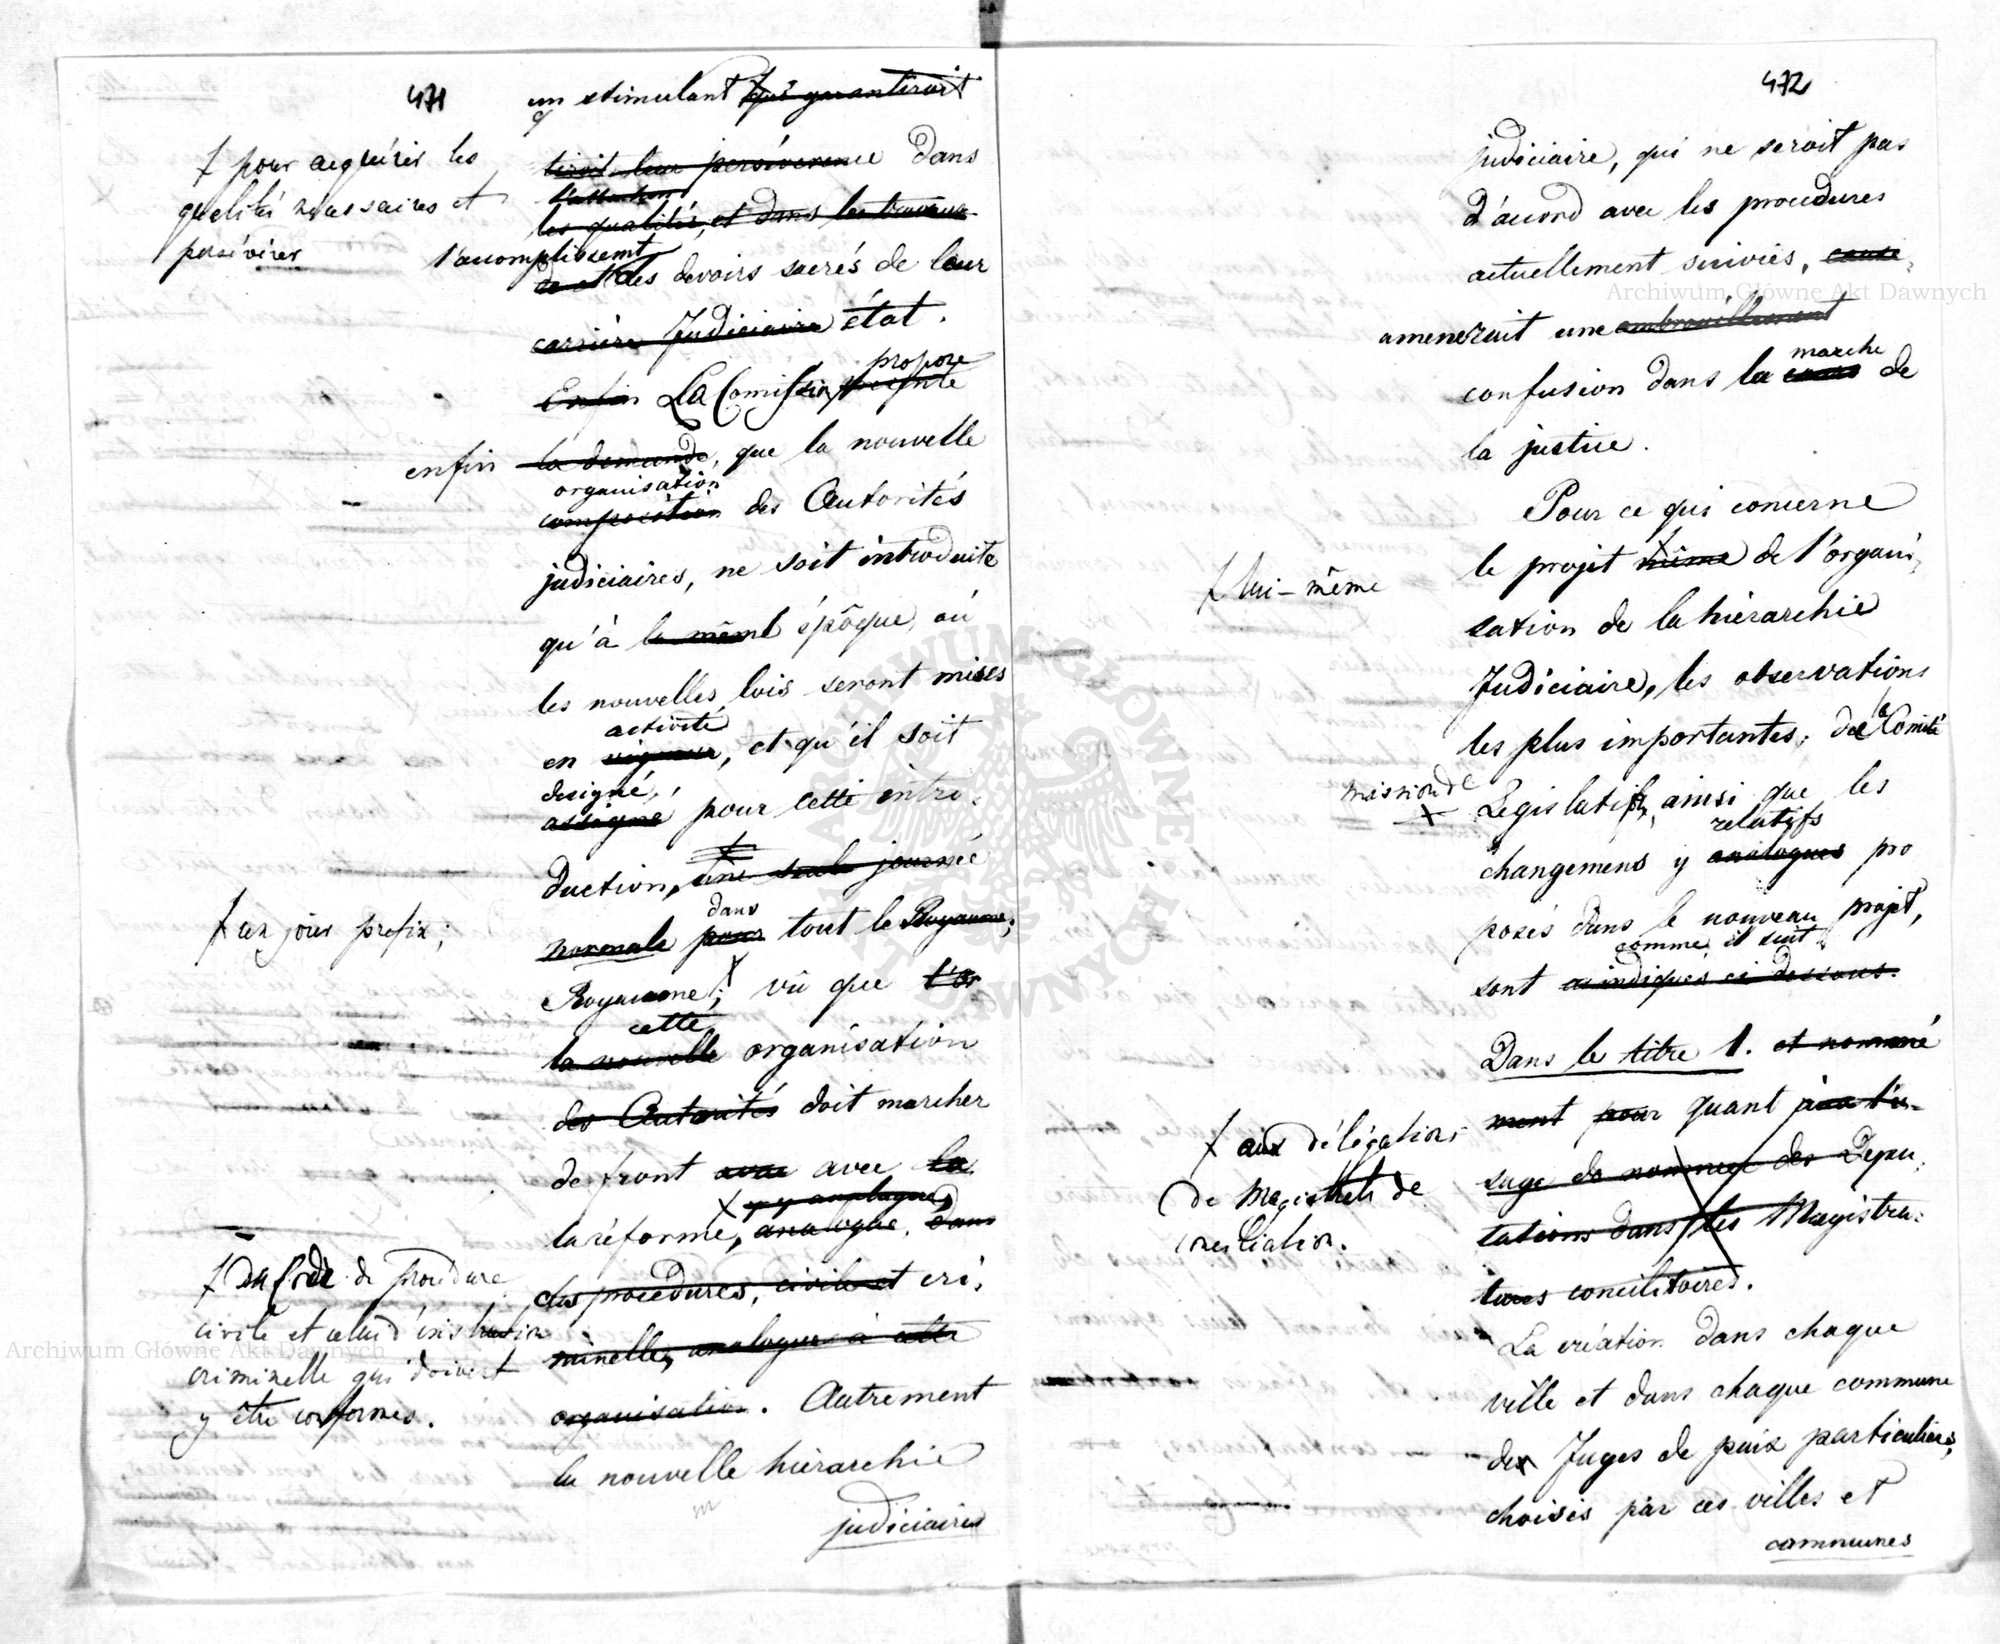 471
un stimulant qui garantiroit
tiroit leur perséverence dans
les qualités, et dans les travaux
l'accomplissemt
des devoirs sacrés de leur
carrière Judiciaire état.
propose
Enfin La Comission
enfin la demande, que la nouvelle
organisation
composition des Autorités
judiciaires, ne soit introduite
qu'à la même épôque, où
les nouvelles lois seront mises
activité
en vigueur, et qu'il soit
designé,
assigné pour cette intro-
duction, une seule journée
dans
normale pour tout le Royaume;
Royaume; vû que l'or
cette
la nouvelle organisation
des Autorités doit marcher
de front avec avec la
la réforme, analogue, dans
des procédures, civile et cri-
minelle, analogue à cette
organisation. Autrement
la nouvelle hiérarchie
judiciaire
pour acquérir les
qualités necessaires et
persévérer
un jour prefix;
Du Code de procédure
civile et celui d'instruction
criminelle qui doivent
y être conformes.
472
judiciaire, qui ne seroit pas
d'accord avec les procedures
actuellement suivies, cause
ameneroit une embrouillement
marche
confusion dans la cours de
la justice.
Pour ce qui concerne
le projet même de l'organi-
lui-même
sation de la hiérarchie
Judiciaire, les observations
les plus importantes, de la Comité
mission de
Legislatif, ainsi que les
relatifs
changemens y analogues pro
posés dans le nouveau projet,
comme il suit
sont indiqués ci dessous.
Dans le titre 1. et nommé
ment pour quant à l'u-
sage de nommer des Depu-
tations dans les Magistra-
tures concilitoires.
aux délégations
de Magistrats de
conciliation.
La création dans chaque
ville et dans chaque commune
des Juges de paix particuliers,
choisis par ces villes et
communes
Archiwum Główne Akt Dawnych
Archiwum Główne Akt Dawnych
ARCHIWUM GŁÓWNE AKT DAWNYCH